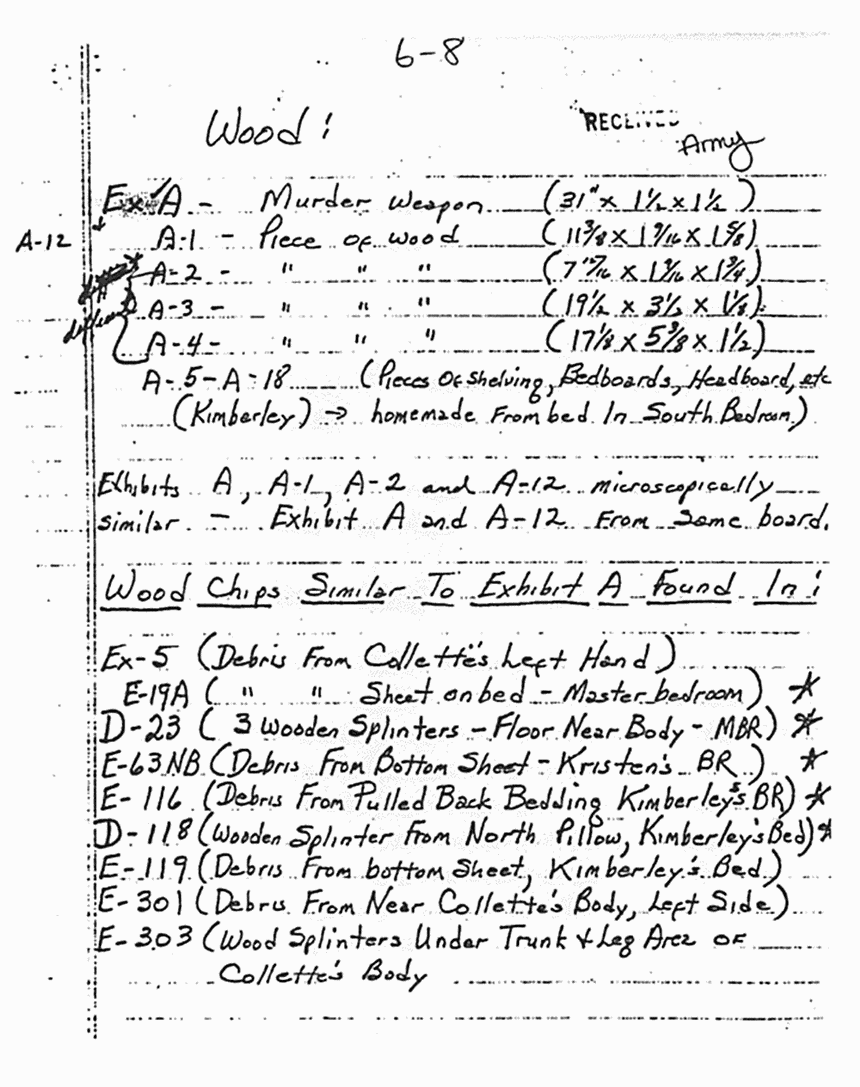 6-8
Wood!
RECEIVED
Army
Ex A - Murder Weapon (31" x 1 1/2 x 1 1/2)
A-12
A-1 - Piece of wood (11 3/8 x 1 9/16 x 1 5/8)
A-2 - " " " (7 15/16 x 1 9/16 x 1 3/4)
A-3 - " " " (19 1/2 x 3 1/2 x 1 1/8)
A-4 - " " " (17 1/8 x 5 3/8 x 1 1/2)
A-5 - A-18 (Pieces Of Shelving, Bedboards, Headboard, etc
(Kimberley) → homemade From bed In South Bedroom)
Exhibits A, A-1, A-2 and A-12 microscopically
similar - Exhibit A and A-12 From Same board.
Wood Chips Similar To Exhibit A Found In:
Ex-5 (Debris From Collette's Left Hand)
E-19A ( " " Sheet on bed - Master bedroom) *
D-23 ( 3 Wooden Splinters - Floor Near Body - MBR) *
E-63NB (Debris From Bottom Sheet - Kristen's BR ) *
E-116 (Debris From Pulled Back Bedding Kimberley's BR) *
D-118 (Wooden Splinter From North Pillow, Kimberley's Bed) *
E-119 (Debris From bottom Sheet, Kimberley's Bed)
E-301 (Debris From Near Collette's Body, Left Side)
E-303 (Wood Splinters Under Trunk & Leg Area OF
Collette's Body